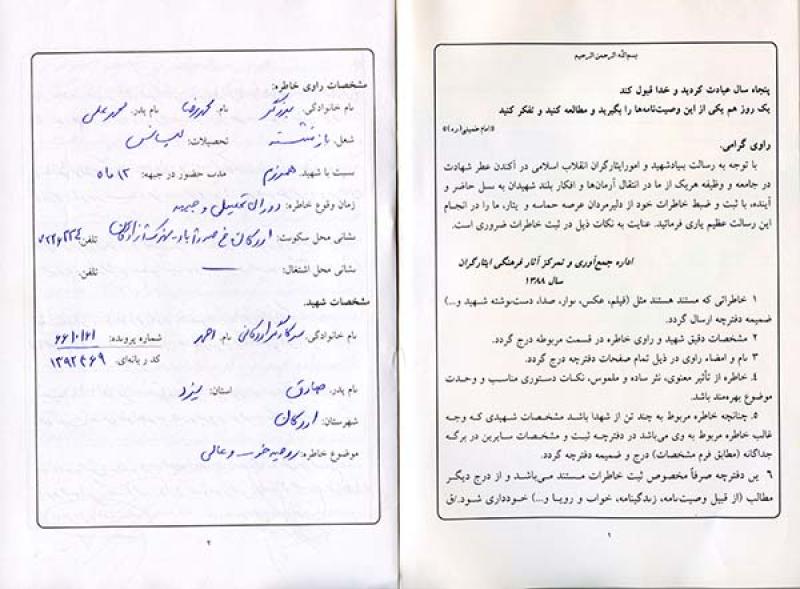 بسم‌الله الرحمن الرحیم
پنجاه سال عبادت کردید و خدا قبول کند
یک روز هم یکی از این وصیت‌نامه‌ها را بگیرید و مطالعه کنید و تفکر کنید
«امام خمینی(ره)»
راوی گرامی.
با توجه به رسالت بنیادشهید و امورایثارگران انقلاب اسلامی در آکندن عطر شهادت
در جامعه و وظیفه هریک از ما در انتقال آرمان‌ها و افکار بلند شهیدان به نسل حاضر و
آینده، با ثبت و ضبط خاطرات خود از دلیرمردان عرصه حماسه و ایثار، ما را در انجام
این رسالت عظیم یاری فرمائید. عنایت به نکات ذیل در ثبت خاطرات ضروری است.
اداره جمع‌آوری و تمرکز آثار فرهنگی ایثارگران
سال ۱۳۸۸
۱ خاطراتی که مستند هستند مثل (فیلم، عکس، نوار، صدا، دست‌نوشته شهید و...)
ضمیمه دفترچه ارسال گردد.
۲ مشخصات دقیق شهید و راوی خاطره در قسمت مربوطه درج گردد.
۳ نام و امضاء راوی در ذیل تمام صفحات دفترچه درج گردد.
۴. خاطره از تأثیر معنوی، نثر ساده و ملموس، نکات دستوری مناسب و وحدت
موضوع بهره‌مند باشد.
۵. چنانچه خاطره مربوط به چند تن از شهدا باشد مشخصات شهیدی که وجه
غالب خاطره مربوط به وی می‌باشد در دفترچه ثبت و مشخصات سایرین در برگه
جداگانه (مطابق فرم مشخصات) درج و ضمیمه دفترچه گردد.
۶ این دفترچه صرفاً مخصوص ثبت خاطرات مستند می‌باشد و از درج دیگر
مطالب (از قبیل وصیت‌نامه، زندگینامه، خواب و رویا و...) خودداری شود./ق
۱
مشخصات راوی خاطره:
نام خانوادگی: برزگر نام: محمدرضا نام پدر: محمدعلی
شغل: بازنشسته تحصیلات: لیسانس
نسبت با شهید: همرزم مدت حضور در جبهه: ۱۳ ماه
زمان وقوع خاطره: دوران تحصیلی و جبهه
نشانی محل سکونت: اردکان خ صدرآباد تلفن:
نشانی محل اشتغال: — تلفن:
مشخصات شهید:
نام خانوادگی: اردکانی نام: احمد شماره پرونده: ۶۶۱۰۱۶۱
کد رایانه‌ای: ۱۳۹۲۴۶۹
نام پدر: صادق استان: یزد
شهرستان: اردکان
موضوع خاطره: روحیه و عالی
۲